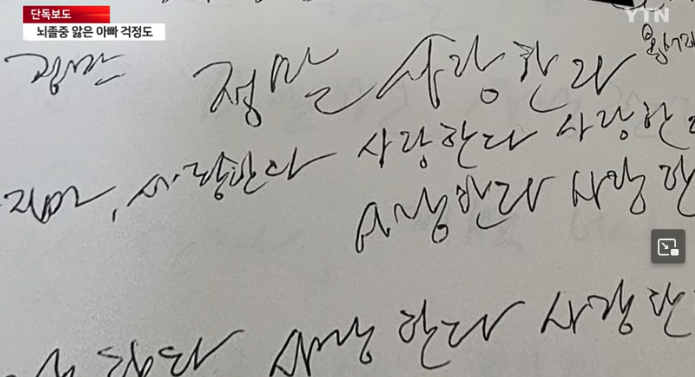 단독보도
YTN
뇌졸중 앓은 아빠 걱정도
정말 정말 사랑한다
사랑한다 사랑한
사랑한다 사랑한다 사랑한
사랑한다 사랑한